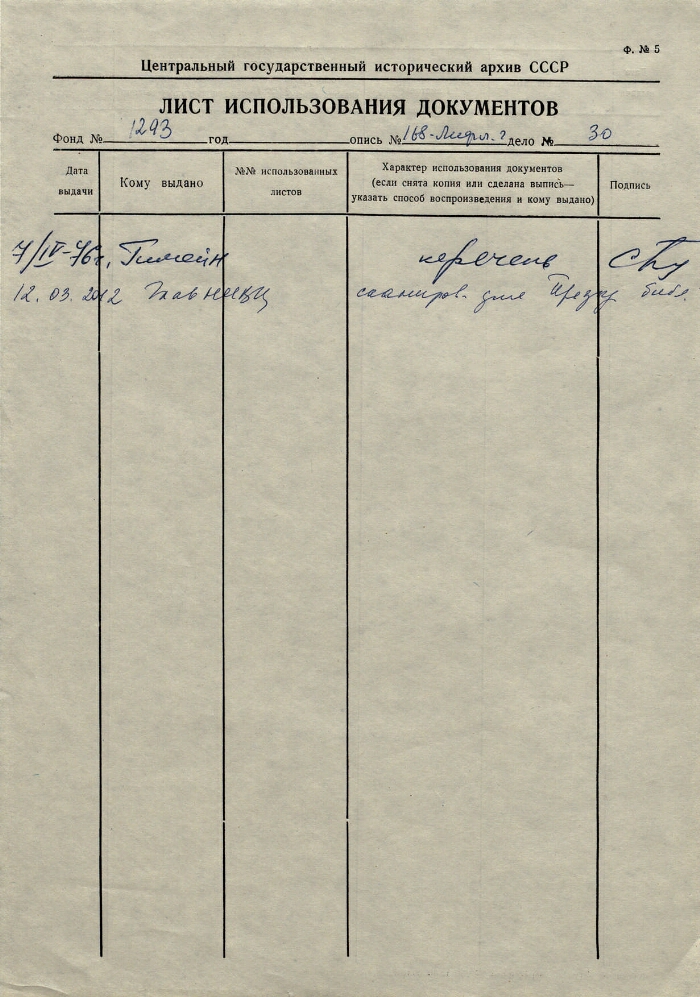 Ф. № 5
Центральный государственный исторический архив СССР
ЛИСТ ИСПОЛЬЗОВАНИЯ ДОКУМЕНТОВ
Фонд № 1293 год опись № 168- дело № 30
Дата выдачи
Кому выдано
№№ использованных листов
Характер использования документов (если снята копия или сделана выпись— указать способ воспроизведения и кому выдано)
Подпись
7/IV-76г. перечень
12.03.2012 сканиров. для През. библ.